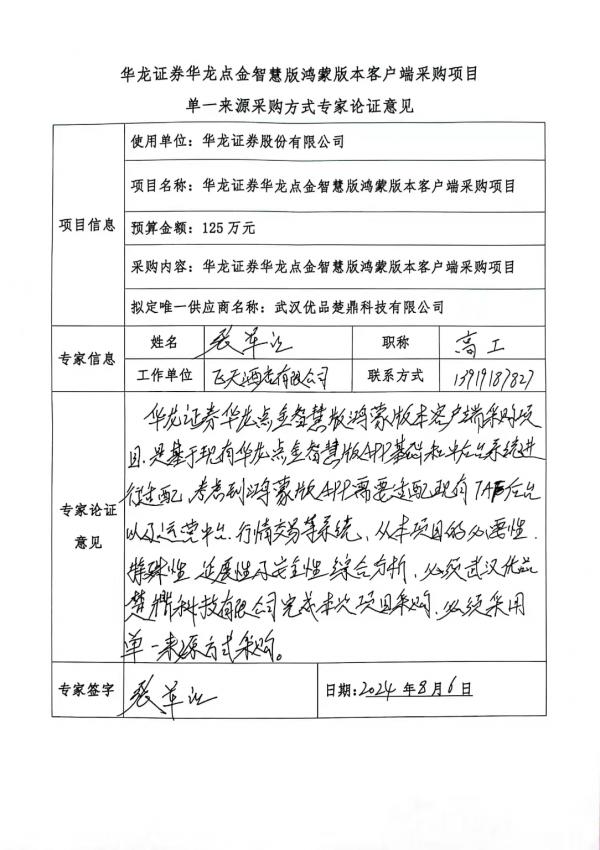 华龙证券华龙点金智慧版鸿蒙版本客户端采购项目
单一来源采购方式专家论证意见
项目信息
使用单位：华龙证券股份有限公司
项目名称：华龙证券华龙点金智慧版鸿蒙版本客户端采购项目
预算金额：125万元
采购内容：华龙证券华龙点金智慧版鸿蒙版本客户端采购项目
拟定唯一供应商名称：武汉优品楚鼎科技有限公司
专家信息
姓名 张军 职称 高工
工作单位 飞天酒店有限公司 联系方式 13919187827
专家论证
意见
华龙证券华龙点金智慧版鸿蒙版本客户端采购项
目，是基于现有华龙点金智慧版APP基础和中台系统进
行适配，考虑到鸿蒙版APP需要适配现有 后台
以及运营中台、行情交易等系统，从本项目的必要性、
特殊性、延展性及安全性综合分析，必须武汉优品
楚鼎科技有限公司完成本次项目采购，必须采用
单一来源方式采购。
专家签字 张军
日期：2024年8月6日